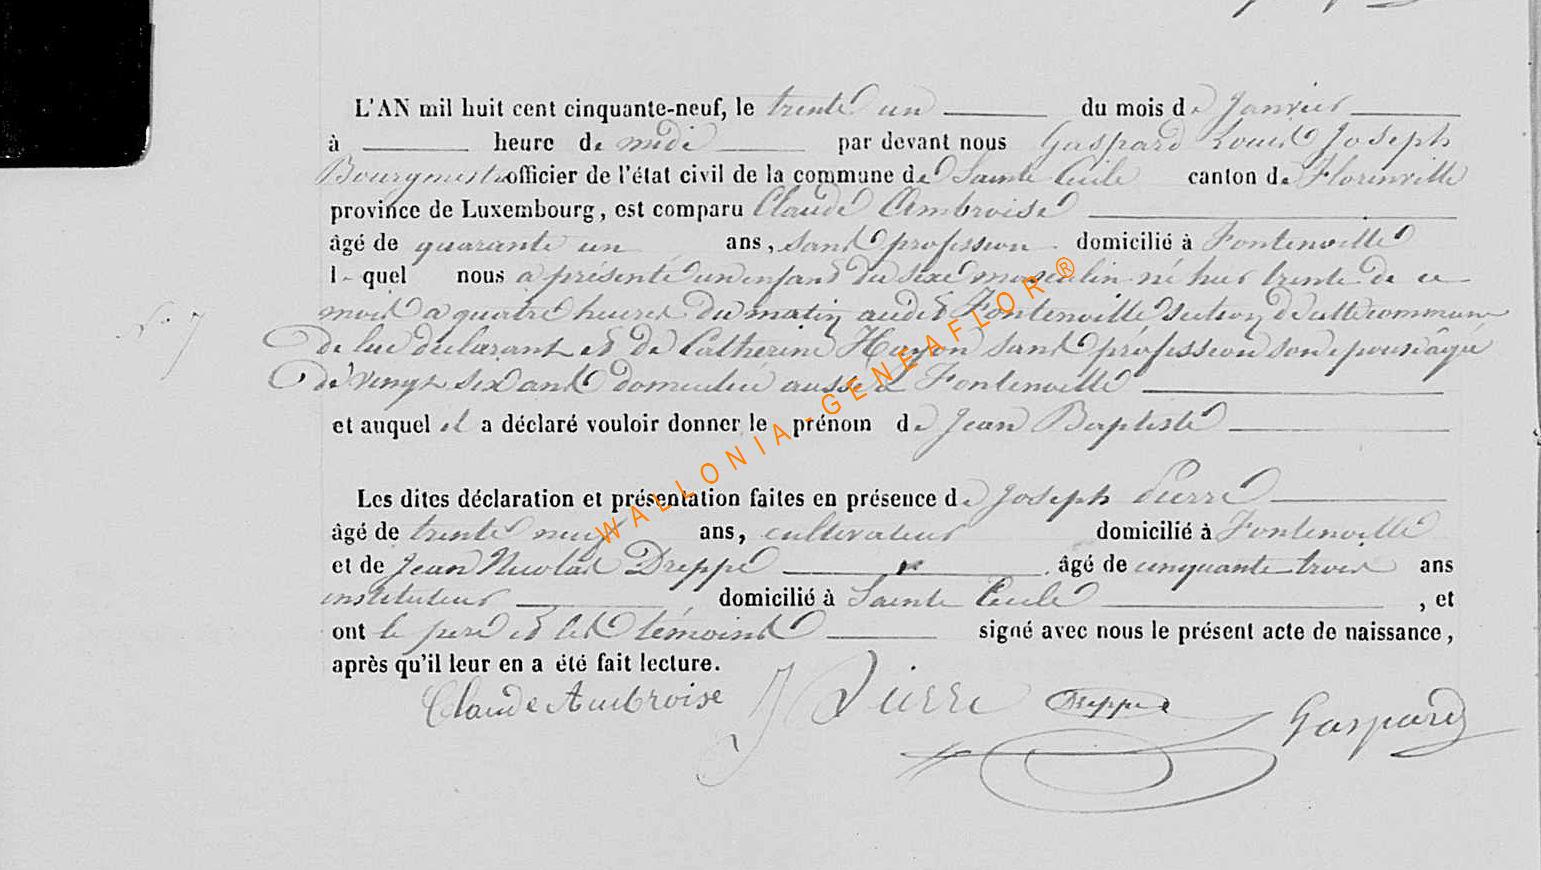 L'AN mil huit cent cinquante-neuf, le trente un du mois de Janvier
à heure de midi par devant nous Gaspard Louis Joseph
Bourgmestre officier de l'état civil de la commune de Sainte Cécile canton de Florenville
province de Luxembourg, est comparu Claude Ambroise
âgé de quarante un ans, sans profession domicilié à Fontenoille
lequel nous a présenté un enfant du sexe masculin né hier trente de ce
mois à quatre heures du matin audit Fontenoille section de cette commune
N° 7
de lui déclarant et de Catherine Hayon sans profession son épouse âgée
de vingt six ans domiciliée aussi à Fontenoille
et auquel il a déclaré vouloir donner le prénom de Jean Baptiste
WALLONIA-GENEAFLOR ®
Les dites déclaration et présentation faites en présence de Joseph Pierre
âgé de trente neuf ans, cultivateur domicilié à Fontenoille
et de Jean Nicolas Dreppe âgé de cinquante trois ans
instituteur, domicilié à Sainte Cécile, et
ont le père et les témoins signé avec nous le présent acte de naissance,
après qu'il leur en a été fait lecture.
Claude Ambroise J Pierre Dreppe Gaspard